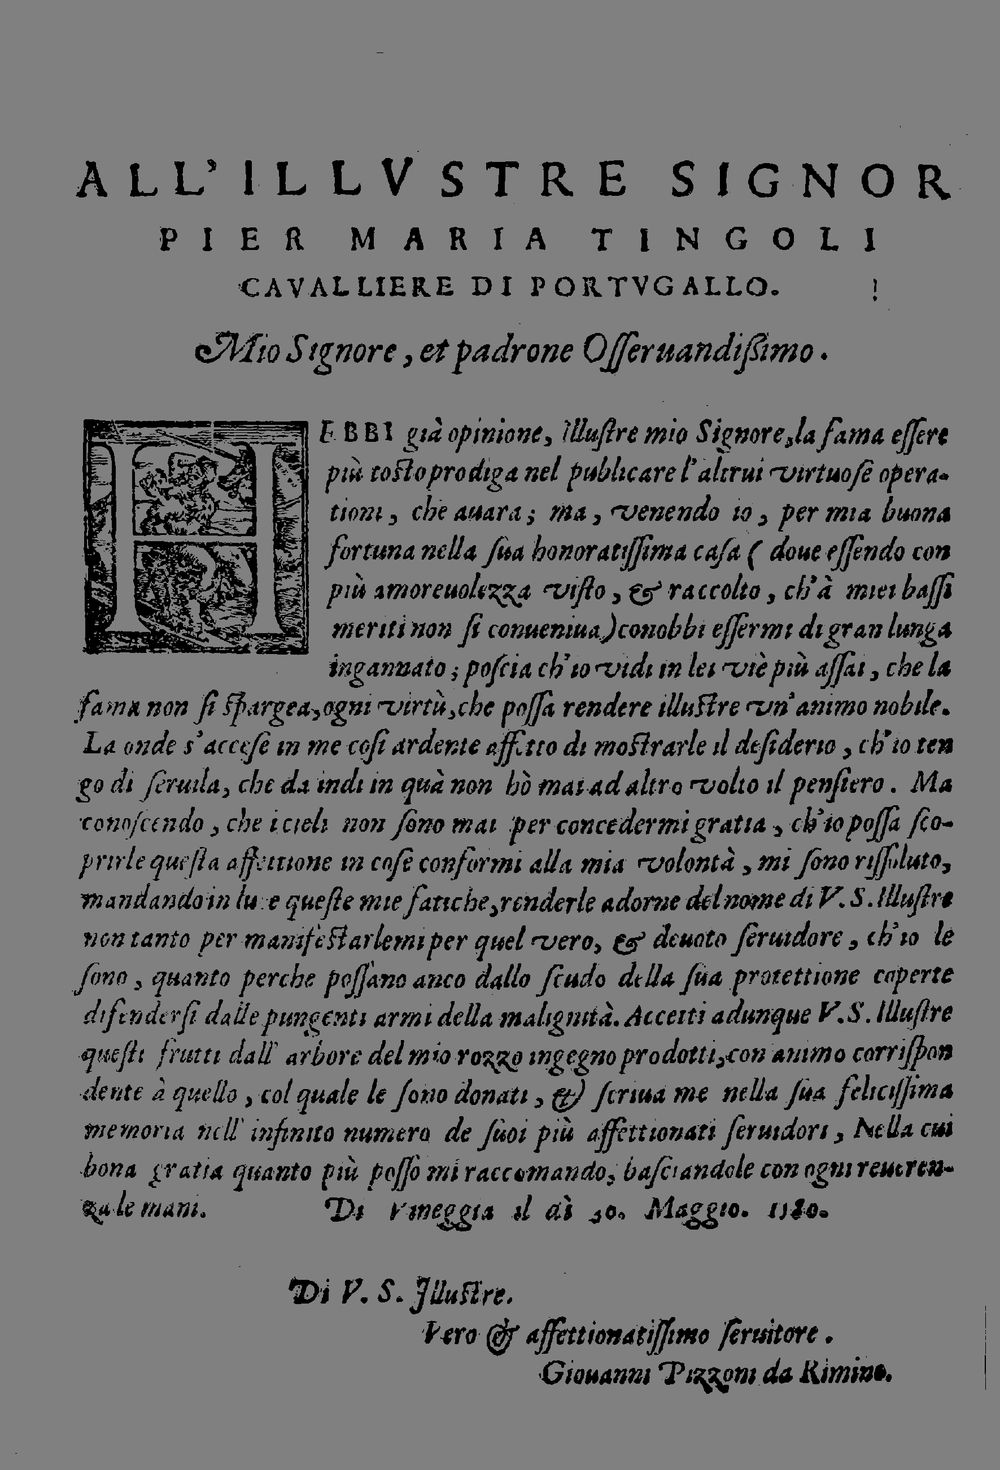 ALL'ILLVSTRE SIGNOR
PIER MARIA TINGOLI
CAVALLIERE DI PORTVGALLO.
Mio Signore, et padrone Osseruandissimo.
HEBBI già opinione, illustre mio Signore, la fama essere
più tosto prodiga nel publicare l'altrui virtuose opera-
tioni, che auara; ma, venendo io, per mia buona
fortuna nella sua honoratissima casa (doue essendo con
più amoreuolezza visto, & raccolto, ch'à miei bassi
meriti non si conueniua) conobbi essermi di gran lunga
ingannato; poscia ch'io vidi in lei viè più assai, che la
fama non si spargea, ogni virtù, che possa rendere illustre vn'animo nobile.
La onde s'accese in me così ardente affetto di mostrarle il desiderio, ch'io ten
go di seruila, che da indi in quà non hò mai ad altro volto il pensiero. Ma
conoscendo, che i cieli non sono mai per concedermi gratia, ch'io possa sco-
prirle questa affettione in cose conformi alla mia volontà, mi sono rissoluto,
mandando in luce queste mie fatiche, renderle adorne del nome di V. S. Illustre
non tanto per manifestarlemi per quel vero, & deuoto seruidore, ch'io le
sono, quanto perche possano anco dallo scudo della sua protettione coperte
difendersi dalle pungenti armi della malignità. Accetti adunque V. S. Illustre
questi frutti dall'arbore del mio rozzo ingegno prodotti, con animo corrispon
dente à quello, col quale le sono donati, & scriua me nella sua felicissima
memoria nell'infinito numero de suoi più affettionati seruidori, Nella cui
bona gratia quanto più posso mi raccomando, basciandole con ogni reueren-
za le mani. Di Vineggia il dì 30. Maggio. 1580.
Di V. S. Illustre.
Vero & affettionatissimo seruitore.
Giouanni Pizzoni da Rimino.